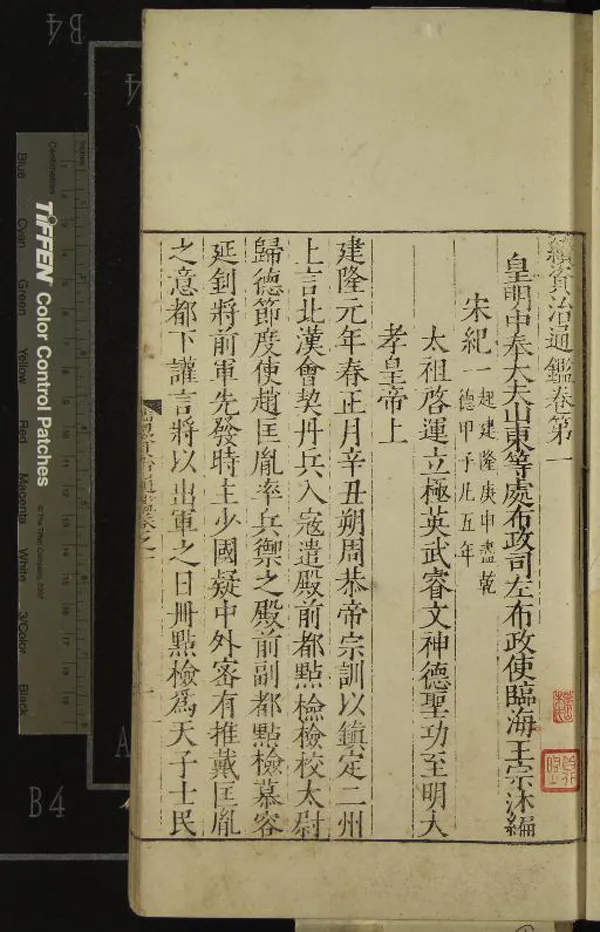 續資治通鑑卷第一
皇明中奉大夫山東等處布政司左布政使臨海王宗沐編
宋紀一起建隆庚申盡乾
一德甲子凡五年
太祖啓運立極英武睿文神德聖功至明大
孝皇帝上
建隆元年春正月辛丑朔周恭帝宗訓以鎮定二州
上言北漢會契丹兵入寇遣殿前都點檢檢校太尉
歸德節度使趙匡胤率兵禦之殿前副都點檢慕容
延釗將前軍先發時主少國疑中外密有推戴匡胤
之意都下讙言將以出軍之日冊點檢爲天子士民
B4
B4
TIFFEN Color Control Patches
© The Tiffen Company, 2007
Centimetres
Inches
Blue
Cyan
Green
Yellow
Red
Magenta
White
3/Color
Black